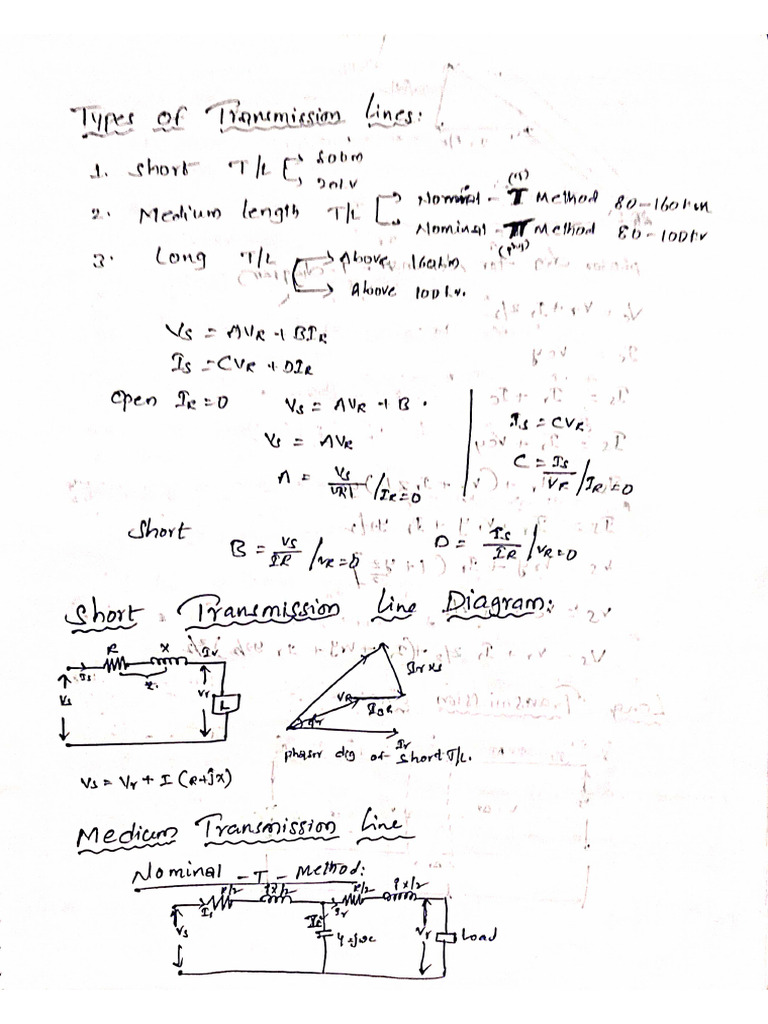 Types of Transmission Lines:
1. Short T/L
80km
20kV
2. Medium length T/L
Nominal - T Method 80-160km
Nominal - π Method 80-100kv
3. Long T/L
Above 160km
Above 100kv.
Vs = AVR + BIR
Is = CVR + DIR
Open IR = 0 Vs = AVR + B .
Vs = AVR
A = Vs/VR /IR=0
Is = CVR
C = Is/VR /IR=0
Short B = Vs/IR /VR=0 D = Is/IR /VR=0
Short Transmission Line Diagram:
R X Ir
Is Z
Vs Vr L
Ir Xs
VR
Ir
phasor dig of short T/L.
Vs = Vr + I (R+jx)
Medium Transmission Line
Nominal - T - Method:
R/2 jx/2 R/2 jx/2
Is Ir
Vs Y=jωc Vr Load